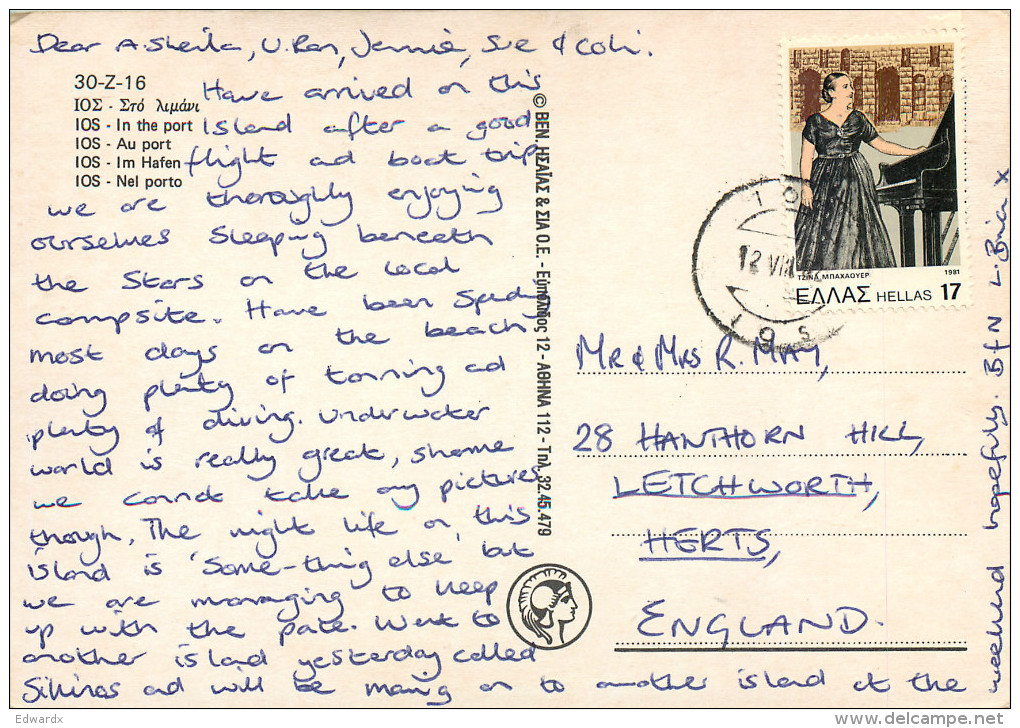 Dear A. Sheila, U. Ron, Jennie, Sue & Colin.
30-Z-16
ΙΟΣ - Στό λιμάνι
IOS - In the port
IOS - Au port
IOS - Im Hafen
IOS - Nel porto
Have arrived on this
Island after a good
flight and boat trip
we are thoroughly enjoying
ourselves sleeping beneath
the stars on the local
campsite. Have been spending
most days on the beach
doing plenty of tanning and
plenty of diving. Underwater
world is really great, shame
we cannot take any pictures
though. The night life on this
island is 'some-thing else' but
we are managing to keep
up with the pace. Went to
another island yesterday called
Sikinos and will be moving on to another island at the
weekend hopefully. BFN L. Brian X
© ΒΕΝ. ΗΣΑΪΑΣ & ΣΙΑ Ο.Ε. - Εὐπόλιδος 12 - ΑΘΗΝΑ 112 - Τηλ. 32.45.479
ΤΖΙΝΑ ΜΠΑΧΑΟΥΕΡ 1981
ΕΛΛΑΣ HELLAS 17
IOS
12 VIII
IOS
MR & MRS R. MAY,
28 HAWTHORN HILL,
LETCHWORTH,
HERTS,
ENGLAND.
Edwardx
delcampe.net